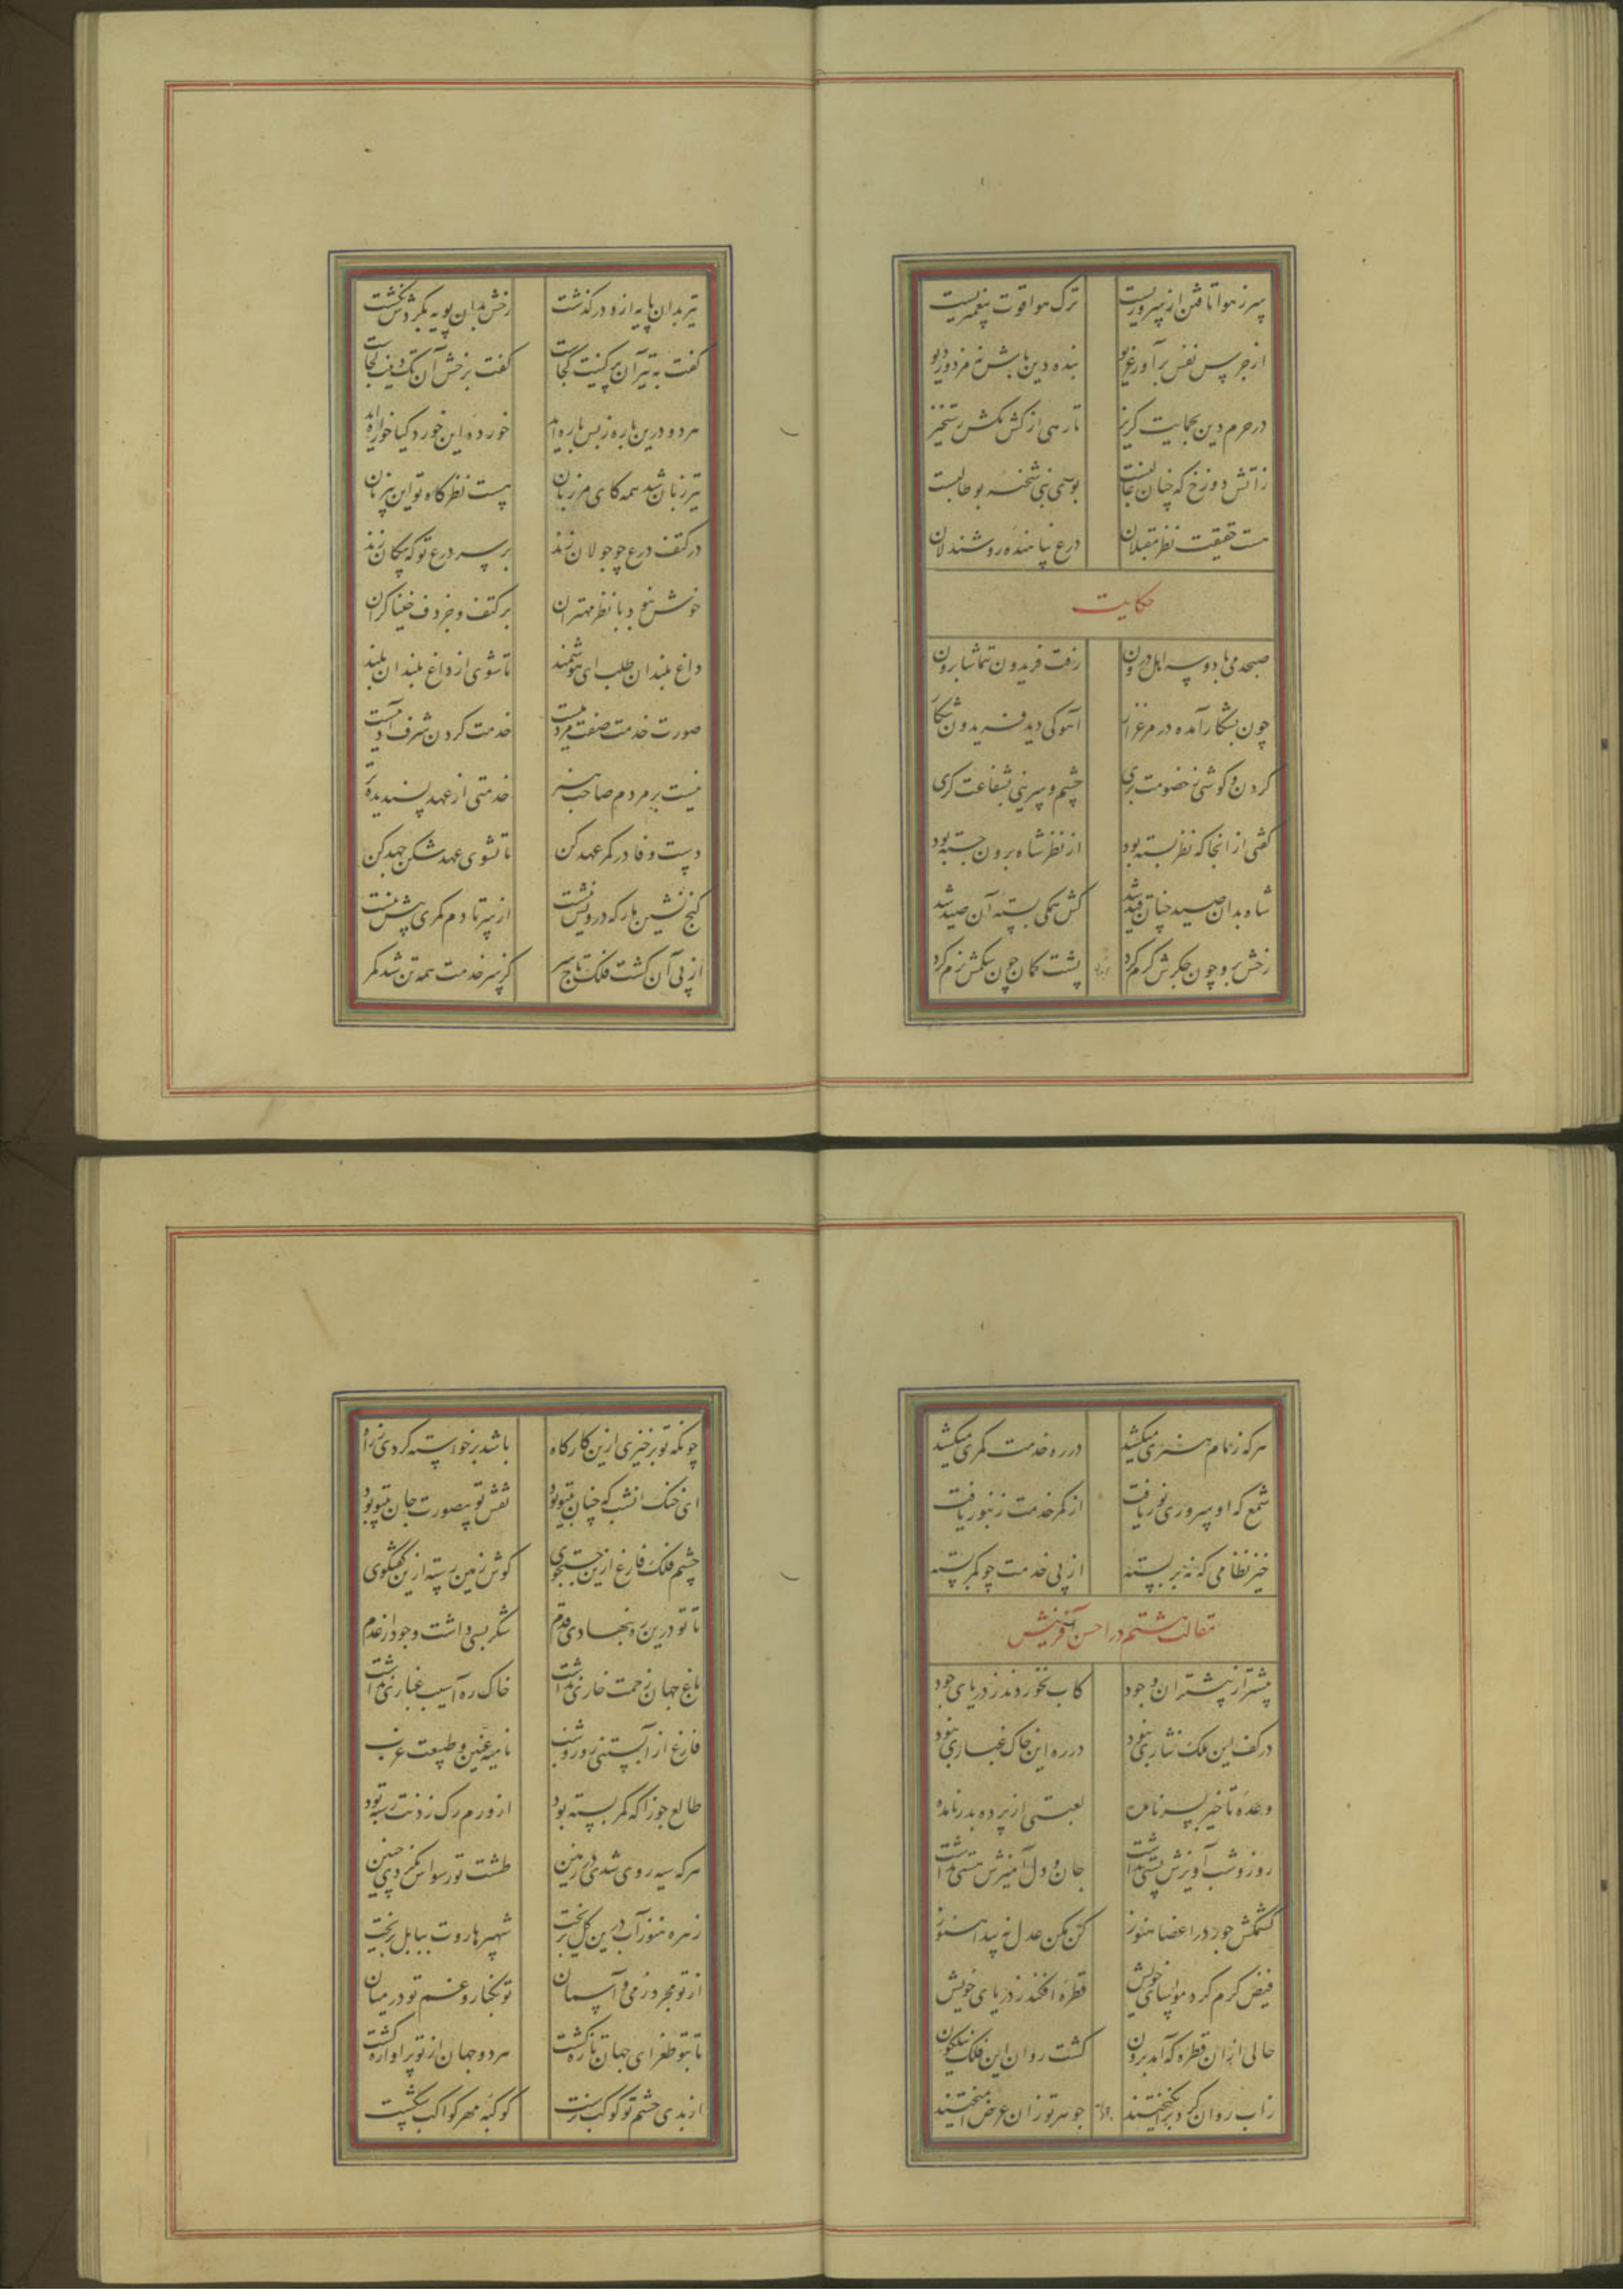 سر ز هوا تافتن از سروریست ترک هوا قوت پیغمبریست
از جرس نفس برآور غریو بنده دین باش نه مزدور دیو
در حرم دین بحمایت گریز تا رهی از کش مکش رستخیز
زاتش دوزخ که چنان غالبست بوی نبی شحنه بوطالبست
هست حقیقت نظر مقبلان درع پناهنده روشندلان
حکایت
صبحدمی با دو سه اهل درون رفت فریدون بتماشا برون
چون بشکار آمده در مرغزار آهوکی دید فریدون شکار
گردن و گوشی ز خصومت بری چشم و سرینی بشفاعت گری
گفتی از آنجا که نظر بسته بود از نظر شاه برون جسته بود
شاه بدان صید چنان قید شد کش همگی بسته آن صید شد
رخش برو چون جگرش گرم کرد پشت کمان چون شکمش نرم کرد
تیر بدان پایه ازو درگذشت رخش بدان پویه بگردش نگشت
گفت به تیر آن پر کینیت کجاست گفت برخش آن تک دینیت کجاست
هر دو درین باره نه بس باره‌اند خورده این خورد گیا خواره‌اند
تیر زبان شد همه کای مرزبان هست نظرگاه تو این بیزبان
در کنف درع چو جولان زند بر سر درع تو که پیکان زند
خوش نبود با نظر مهتران بر کتف و جز دف خنیاگران
داغ بلندان طلب ای هوشمند تا شوی از داغ بلندان بلند
صورت خدمت صفت مردمیست خدمت کردن شرف آدمیست
نیست بر مردم صاحب هنر خدمتی از عهد پسندیده‌تر
دست وفا در کمر عهد کن تا نشوی عهدشکن جهد کن
گنج نشین مار که درویش نیست از سر تا دم کمری بیش نیست
از پی آن گشت فلک تاج سر کز سر خدمت همه تن شد کمر
هر که زمام هنری میکشد در ره خدمت کمری میکشد
شمع که او سروری نور یافت از کمر خدمت زنبور یافت
خیز نظامی که نه بر بسته از پی خدمت چو کمر بسته
مقالت هشتم در احسن آفرینش
پیشتر از پیشتران وجود کاب نخوردند ز دریای جود
در کف این ملک نثاری نبود در ره این خاک غباری نبود
وعده تاخیر بسر نامده لعبتی از پرده بدر نامده
روز و شب آویزش پستی نداشت جان و دل آمیزش هستی نداشت
کشمکش جور در اعضا هنوز کن مکن عدل نه پیدا هنوز
فیض کرم کرد مواسای خویش قطره افکند ز دریای خویش
حالی از آن قطره که آمد برون گشت روان این فلک نیلگون
زاب روان گرد برانگیختند جوهر تو زان عرض آمیختند
چونکه تو برخیزی ازین کارگاه باشد برخواسته گردی ز راه
ای خنک آنشب که جهان بی تو بود نقش تو بیصورت جان بی تو بود
چشم فلک فارغ ازین جستجوی گوش زمین رسته ازین گفتگوی
تا تو درین ره ننهادی قدم شکر بسی داشت وجود از عدم
باغ جهان زحمت خاری نداشت خاک ره آسیب غباری نداشت
فارغ از آبستنی روز و شب نامیه عنین و طبیعت عزب
طالع جوزا که کمر بسته بود از ورم رگ زدنت رسته بود
هر که سیه روی شدی در زمین طشت تو رسواش نکردی چنین
زهره هنوز آب درین گل نریخت شهپر هاروت ببابل نریخت
از تو مجرد زمی و آسمان تو بکنار و غم تو در میان
تا بتو طغرای جهان تازه گشت هر دو جهان از تو پر آوازه گشت
از بدی چشم تو کوکب نرست کوکبه مهر کواکب شکست